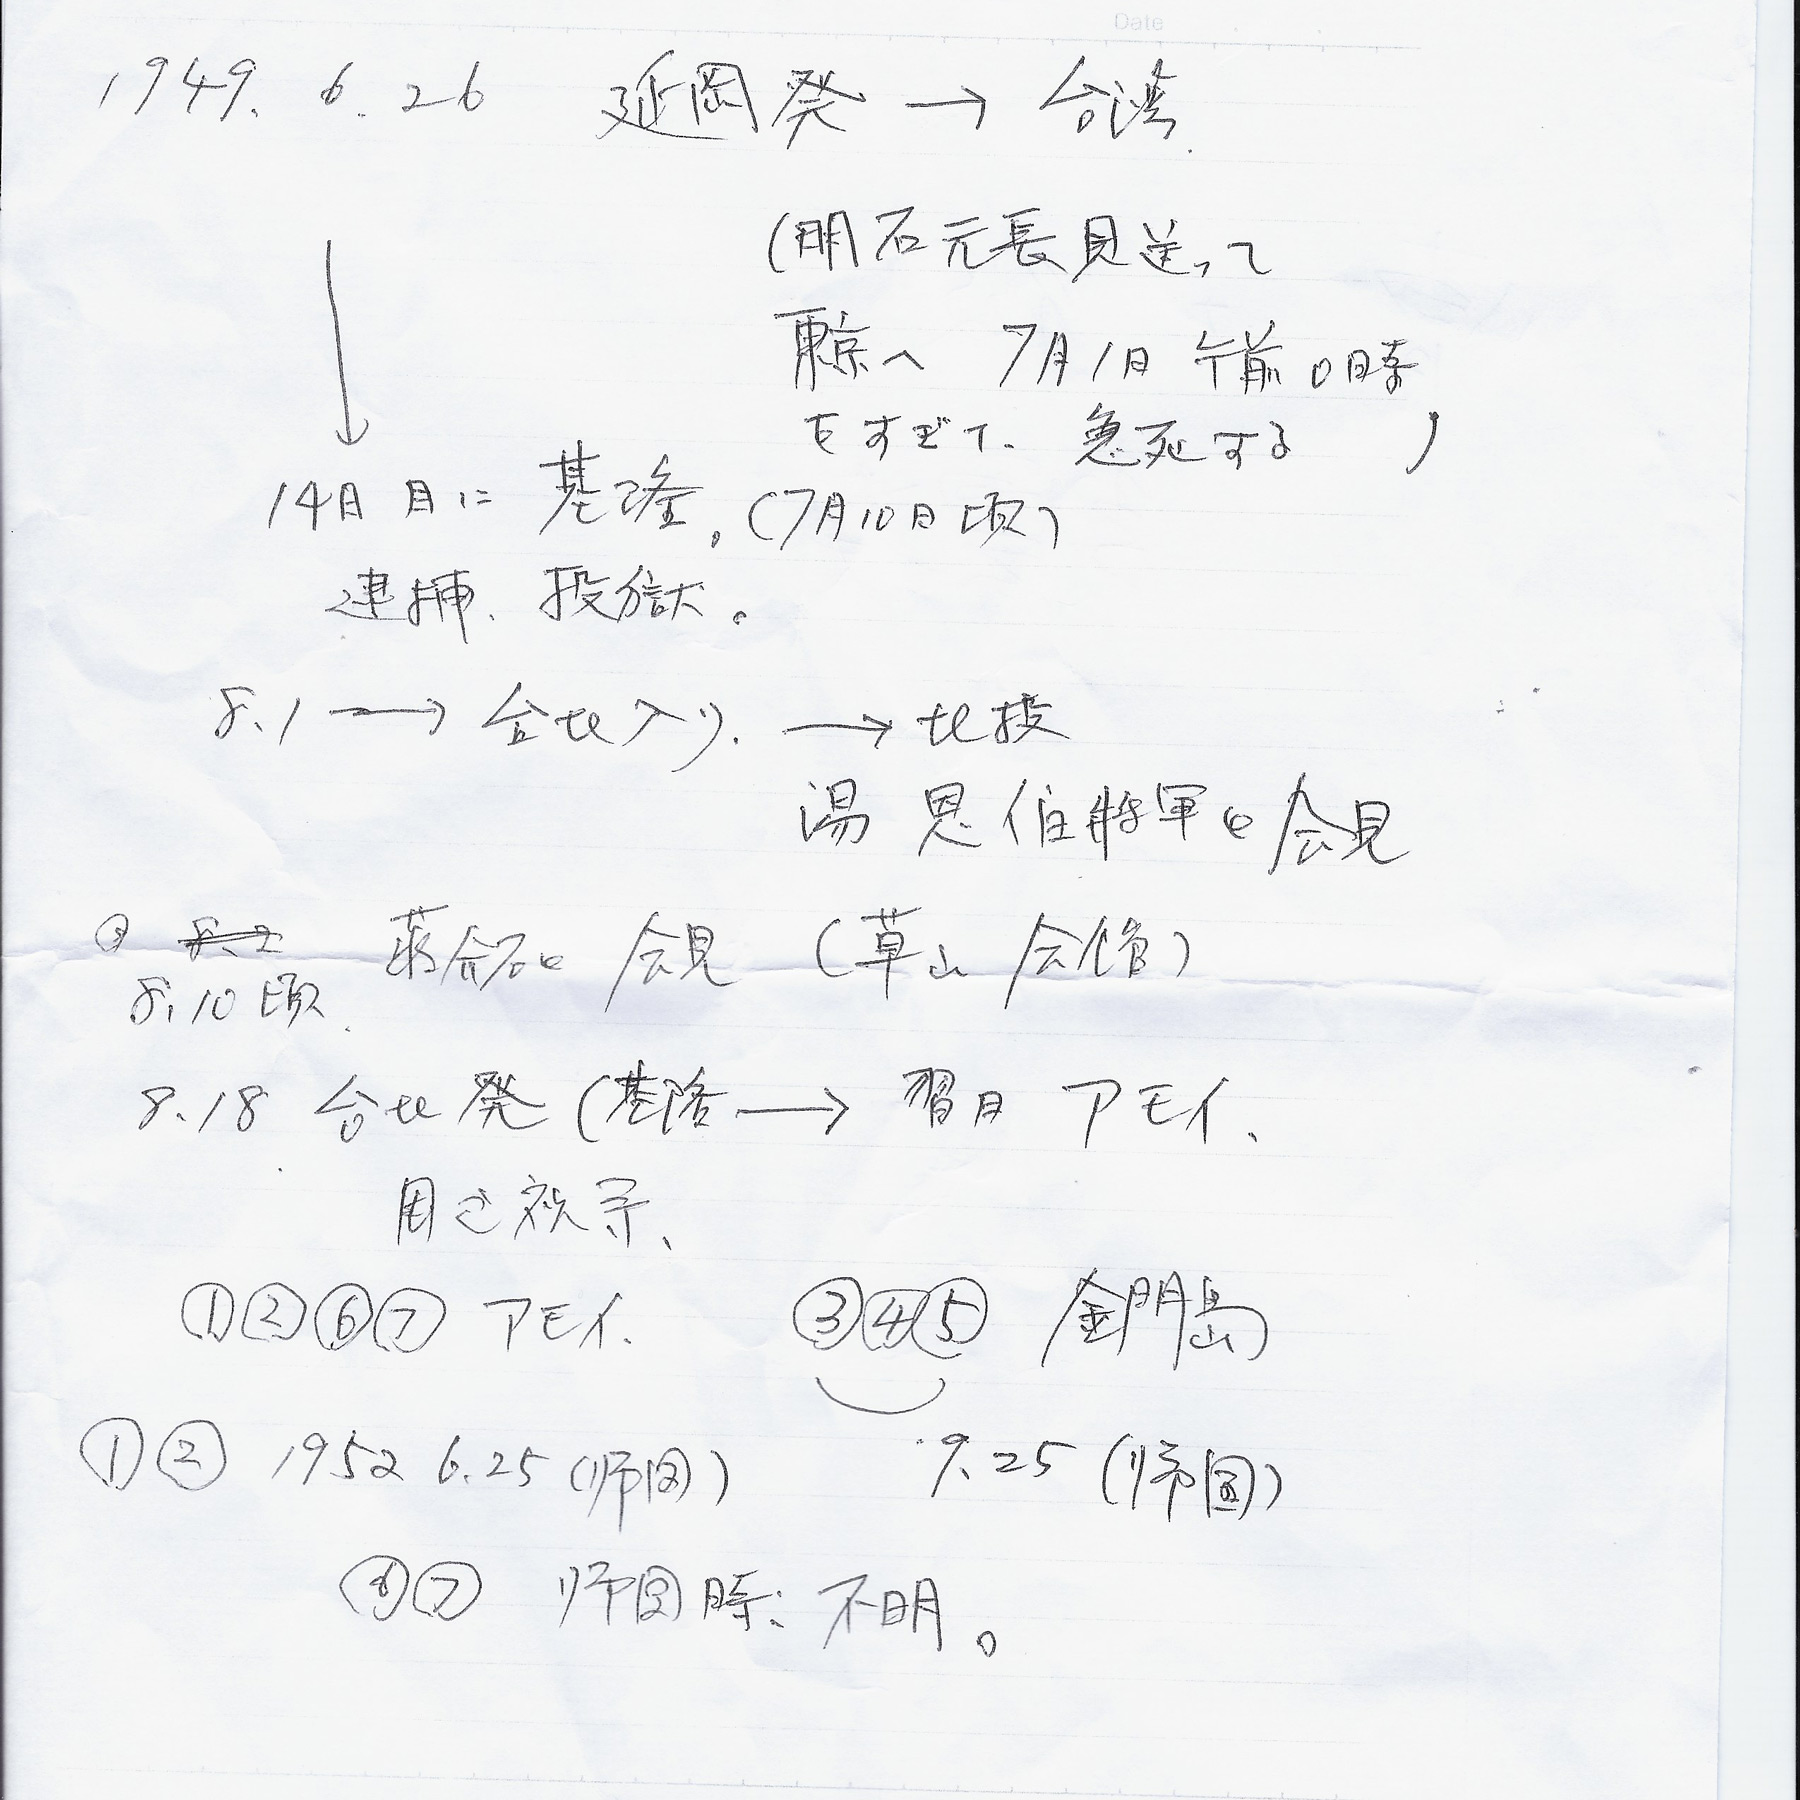 Date
1949. 6. 26 延岡発 → 台湾
(明石元長見送って
東京へ 7月1日 午前0時
をすぎて、急死する)
14日目に 基隆。(7月10日頃)
逮捕、投獄。
8.1 → 台北入り. → 北投
湯恩伯将軍と会見
③ 8.2 蒋介石と会見 (草山会館)
8.10頃.
8.18 台北発 (基隆 → 翌日 アモイ、
周辺視察、
①②⑥⑦ アモイ. ③④⑤ 金門島
①② 1952 6.25 (帰国) 9.25 (帰国)
⑥⑦ 帰国時、不明。